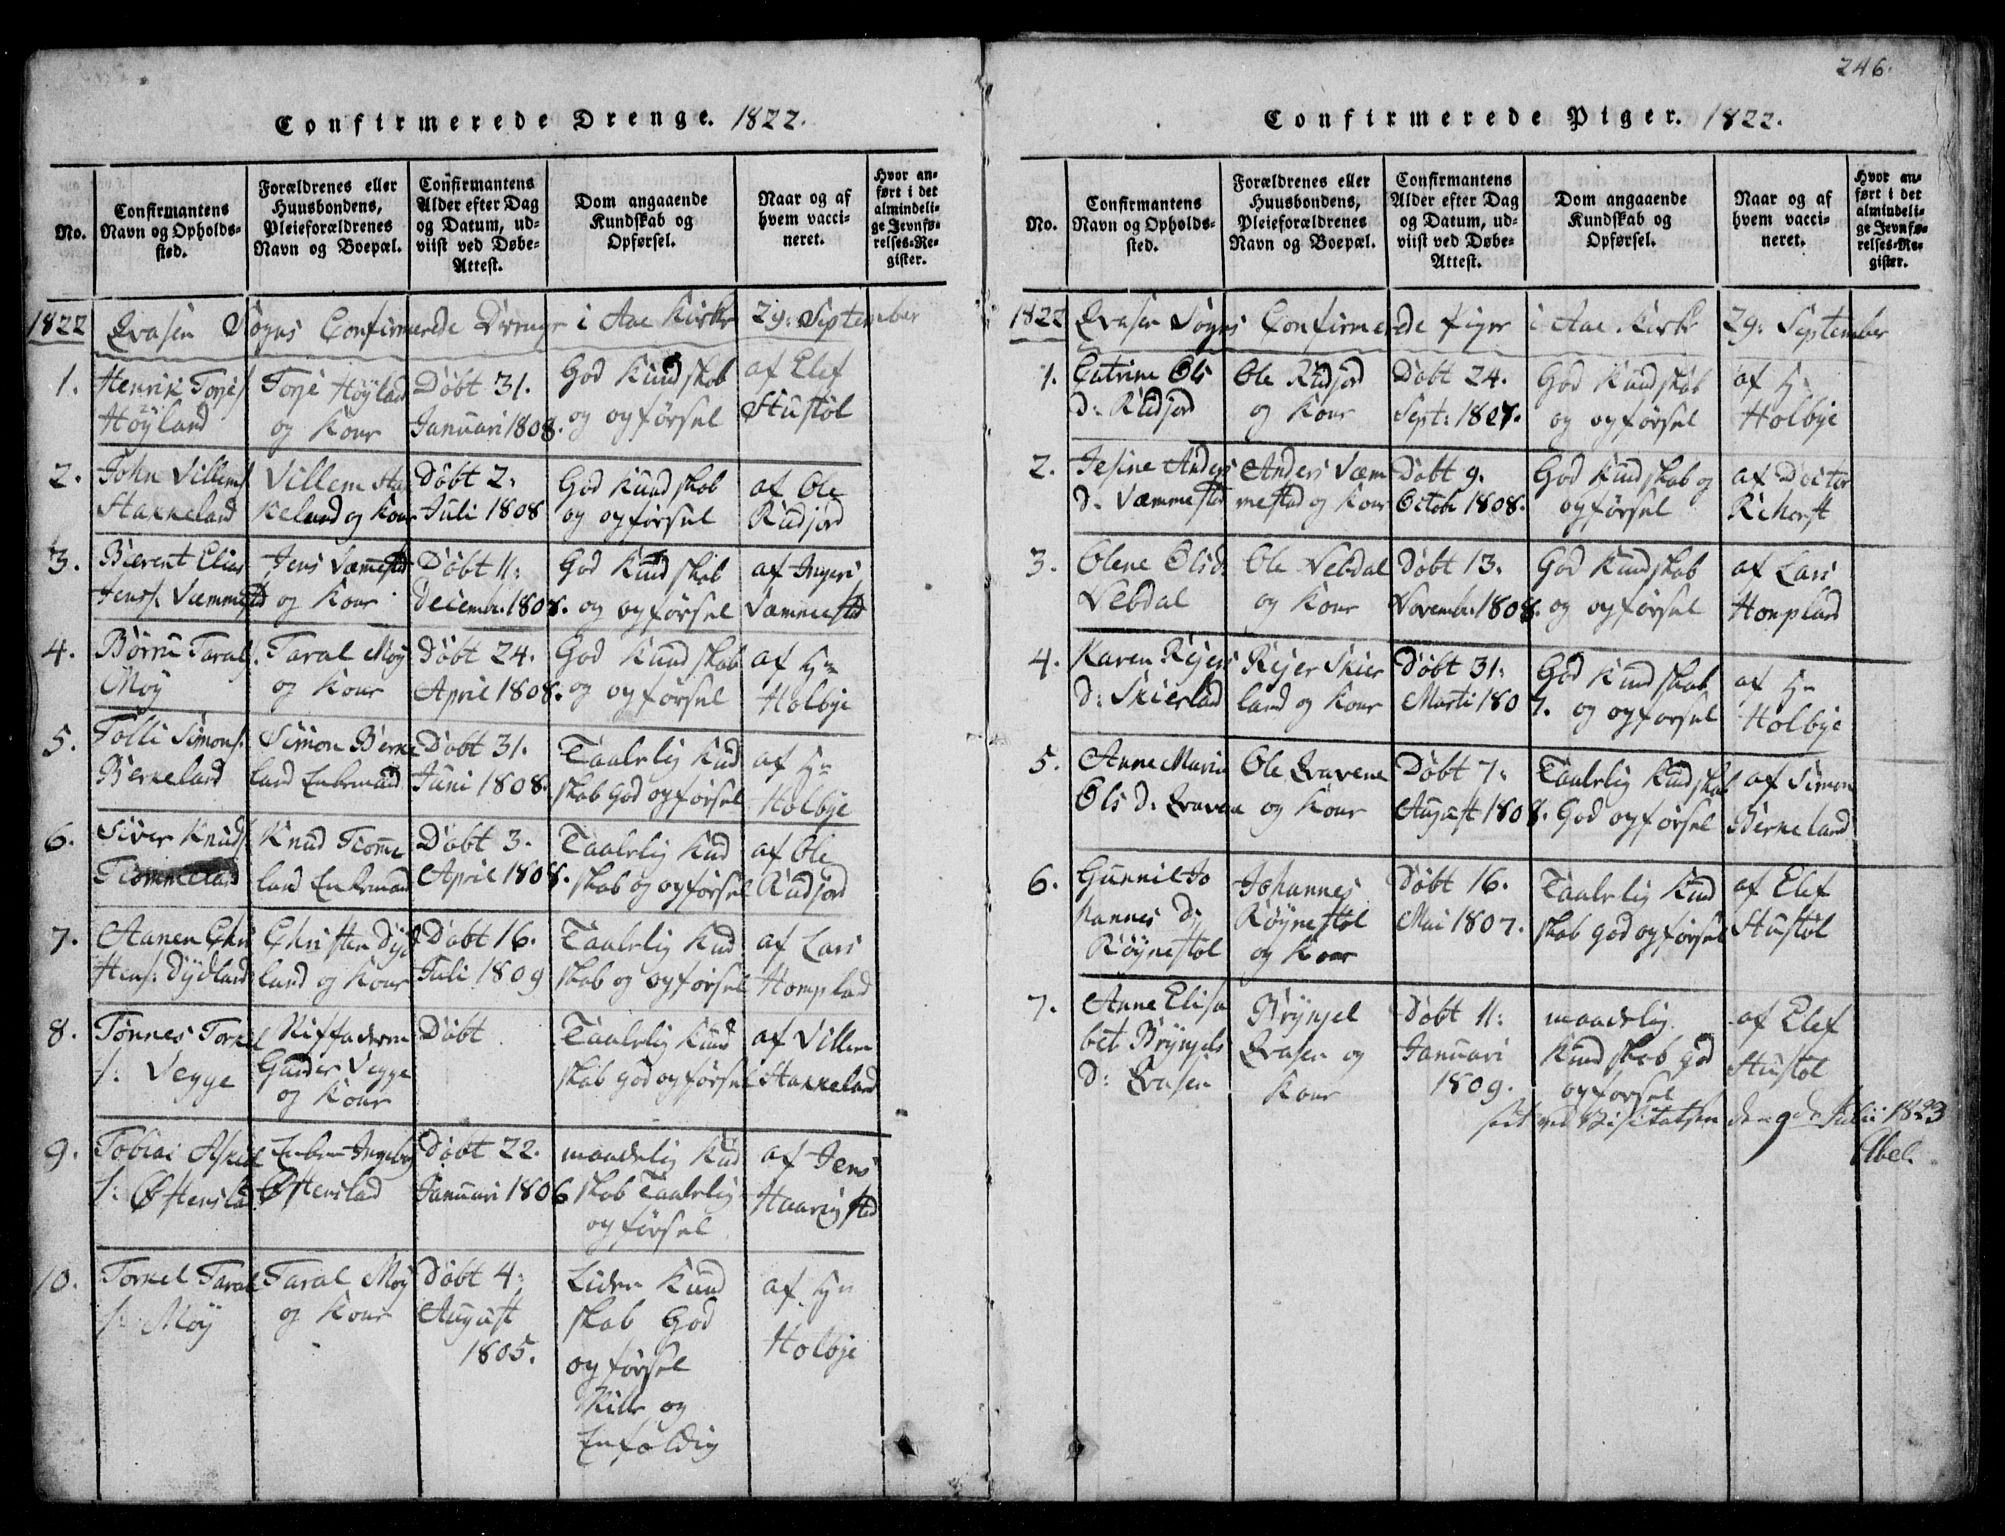 Confirmerede Drenge. 1822.
No.
Confirmantens
Navn og Opholds-
sted.
Forældrenes eller
Huusbondens,
Pleieforældrenes
Navn og Boepæl.
Confirmantens
Alder efter Dag
og Datum, ud-
viist ved Døbe-
Attest.
Dom angaaende
Kundskab og
Opførsel.
Naar og af
hvem vacci-
neret.
Hvor an-
ført i det
almindeli-
ge Jevnfø-
relses-Re-
gister.
1822 Qvasen Sogns Confirmerede Drenge i Aae Kirke 29: September
1.
Henrik Torjes
Høÿland
Torje Høÿlad
og Kone
Døbt 31.
Januari 1808.
God Kundskab
og opførsel
af Elef
Stustøl
2.
John Villems
Stakkeland
Villem Stak
keland og Kone
Døbt 2:
Juli 1808
God Kundskab
og opførsel
af Ole
Rudjord
3.
Bierent Elias
Jens s: Væmmestd
Jens Væmestad
og Kone
Døbt 11:
Decembr. 1808.
God Kundskab
og opførsel
af Inger
Væmmestd
4.
Børru Tarals.
Moÿ
Taral Moÿ
og Kone
Døbt 24.
April 1808.
God Kundskab
og opførsel
af Hr
Holbye
5.
Tolli Simons.
Berkeland
Simon Berke
land Enkemand
Døbt 31.
Juni 1808.
Taalelig Kud
skab God opførsel
af Hr
Holbye
6.
Siver Knuds.
Tiommeland
Knud Tiomme
land Enkemand
Døbt 3.
April 1808.
Taalelig Kud
skab og opførsel
af Ole
Rudjord
7.
Aanen Chri
stens: Dÿdland
Christen Dÿd
land og Kone
Døbt 16.
Juli 1809
Taalelig Kud
skab og opførsel
af Lars
Homplad
8.
Tønnes Torkel
s: Vegge
Stiffaderen
Gunder Vegge
og Kone
Døbt
Taalelig Kund
skab god opførsel
af Villem
Stakkeland
9.
Tobias Askel
s: Østenstad
Enken Ingebor
Østenstad
Døbt 22.
Januari 1806
maadelig Kud
skab Taalelig
opførsel
af Jens
Haaringstad
10.
Torkel Taral
s: Moÿ
Taral Moÿ
og Kone
Døbt 4:
August
1805.
Liden Kund
skab God
opførsel
Stille og
Enfoldig
af Hr
Holbye
246.
Confirmerede Piger. 1822.
No.
Confirmantens
Navn og Opholds-
sted.
Forældrenes eller
Huusbondens,
Pleieforældrenes
Navn og Boepæl.
Confirmantens
Alder efter Dag
og Datum, ud-
viist ved Døbe-
Attest.
Dom angaaende
Kundskab og
Opførsel.
Naar og af
hvem vacci-
neret.
Hvor an-
ført i det
almindeli-
ge Jevnfø-
relses-Re-
gister.
1822 Qvasen Sogns Confirmerede Piger i Aae Kirke 29: September
1.
Catrine Ols
d: Rudjord
Ole Rudjord
og Kone
Døbt 24.
Sept: 1807.
God Kundskab
og opførsel
af Hr
Holbye
2.
Jesine Anders
d. Væmmestad
Anders Væm
mestad og Kone
Døbt 9.
Octobr 1808.
God Kundskab og
opførsel
af Doctor
3.
Olene Olsd:
Vebdal
Ole Vebdal
og Kone
Døbt 13.
Novembr. 1808.
God Kundskab
og opførsel
af Lars
Hompland
4.
Karen Rejers
d: Skierlad
Rejer Skier
land og Kone
Døbt 31:
Marti 1807.
God Kundskab
og opførsel
af Hr
Holbye
5.
Anne Maria
Ols d: Qvaven
Ole Qvavene
og Kone
Døbt 7:
August 1808.
Taalelig Kudskab
God opførsel
af Simon
Berkeland
6.
Gunnil Jo
hannes d:
Røÿnestøl
Johannes
Røÿnestøl
og Kone
Døbt 16.
Mai 1807.
Taalelig Kud
skab god opførsel
af Elef
Stustøl
7.
Anne Elisa
bet Brÿngels
d: Qvasen
Brÿngel
Qvasen og
Kone
Døbt 11:
Januari
1809.
maadelig
Kundskab god
opførsel
af Elef
Stustøl
seet ved Visitatsen den 9de Julii 1823
Abel.